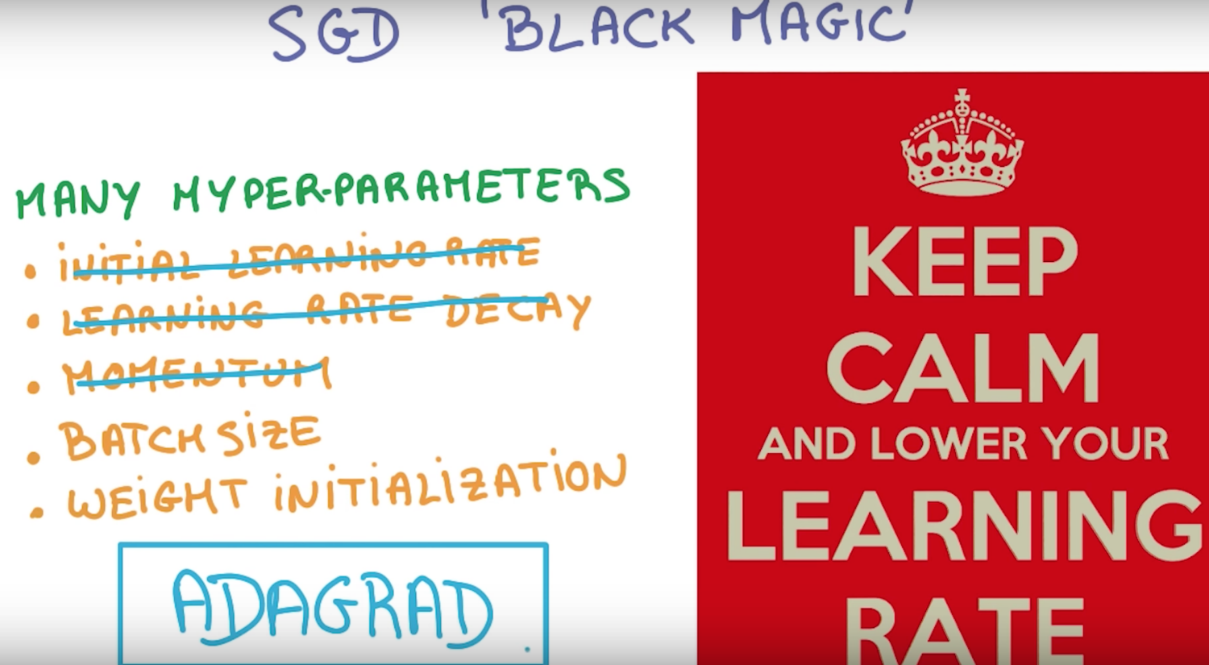 SGD 'BLACK MAGIC'
MANY HYPER-PARAMETERS
• INITIAL LEARNING RATE
• LEARNING RATE DECAY
• MOMENTUM
• BATCH SIZE
• WEIGHT INITIALIZATION
ADAGRAD.
KEEP
CALM
AND LOWER YOUR
LEARNING
RATE